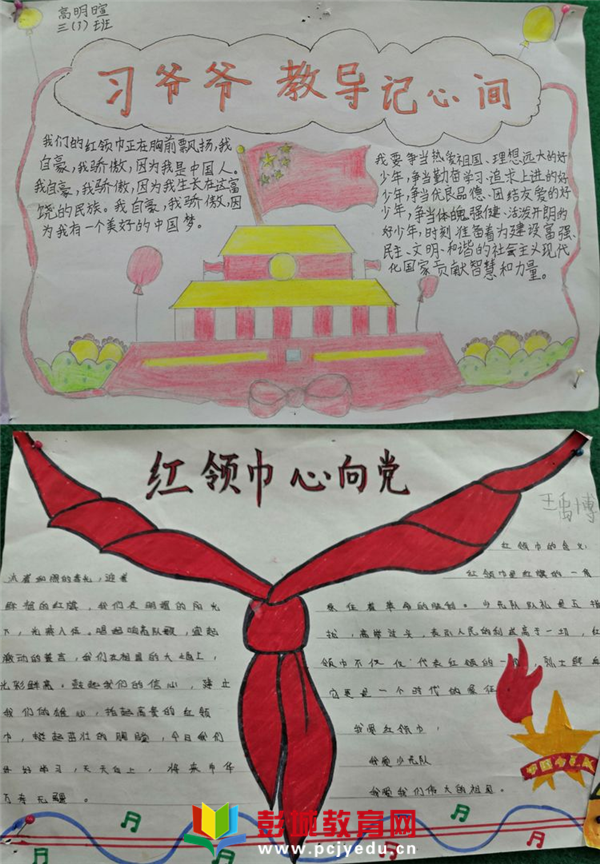 高明暄
三(1)班
习爷爷 教导记心间
我们的红领巾正在胸前飘扬,我
自豪,我骄傲,因为我是中国人。
我自豪,我骄傲,因为我生长在这富
饶的民族。我自豪,我骄傲,因
为我有一个美好的中国梦。
我要争当热爱祖国、理想远大的好
少年,争当勤奋学习、追求上进的好
少年,争当优良品德、团结友爱的好
少年,争当体魄强健、活泼开朗的
好少年,时刻准备着为建设富强、
民主、文明、和谐的社会主义现代
化国家贡献智慧和力量。
红领巾心向党
王禹博
鲜艳的红旗,我们在明媚的阳光
下,光荣入伍。唱起响亮队歌,宣起
激动的誓言,我们在祖国的大地上,
光彩鲜亮。鼓起我们的信心,建立
巾,挺起茁壮的胸膛,今日我们
好好学习,天天向上,将来中华
万寿无疆。
红领巾的含义:
红领巾是红旗的一角
象征着革命的胜利。少先队队礼是五指
并拢,高举过头,表示人民的利益高于一切,红
我爱红领巾,
我爱少先队
我爱我们伟大的祖国。
中国少年先
彭城教育网
www.pcjyedu.cn